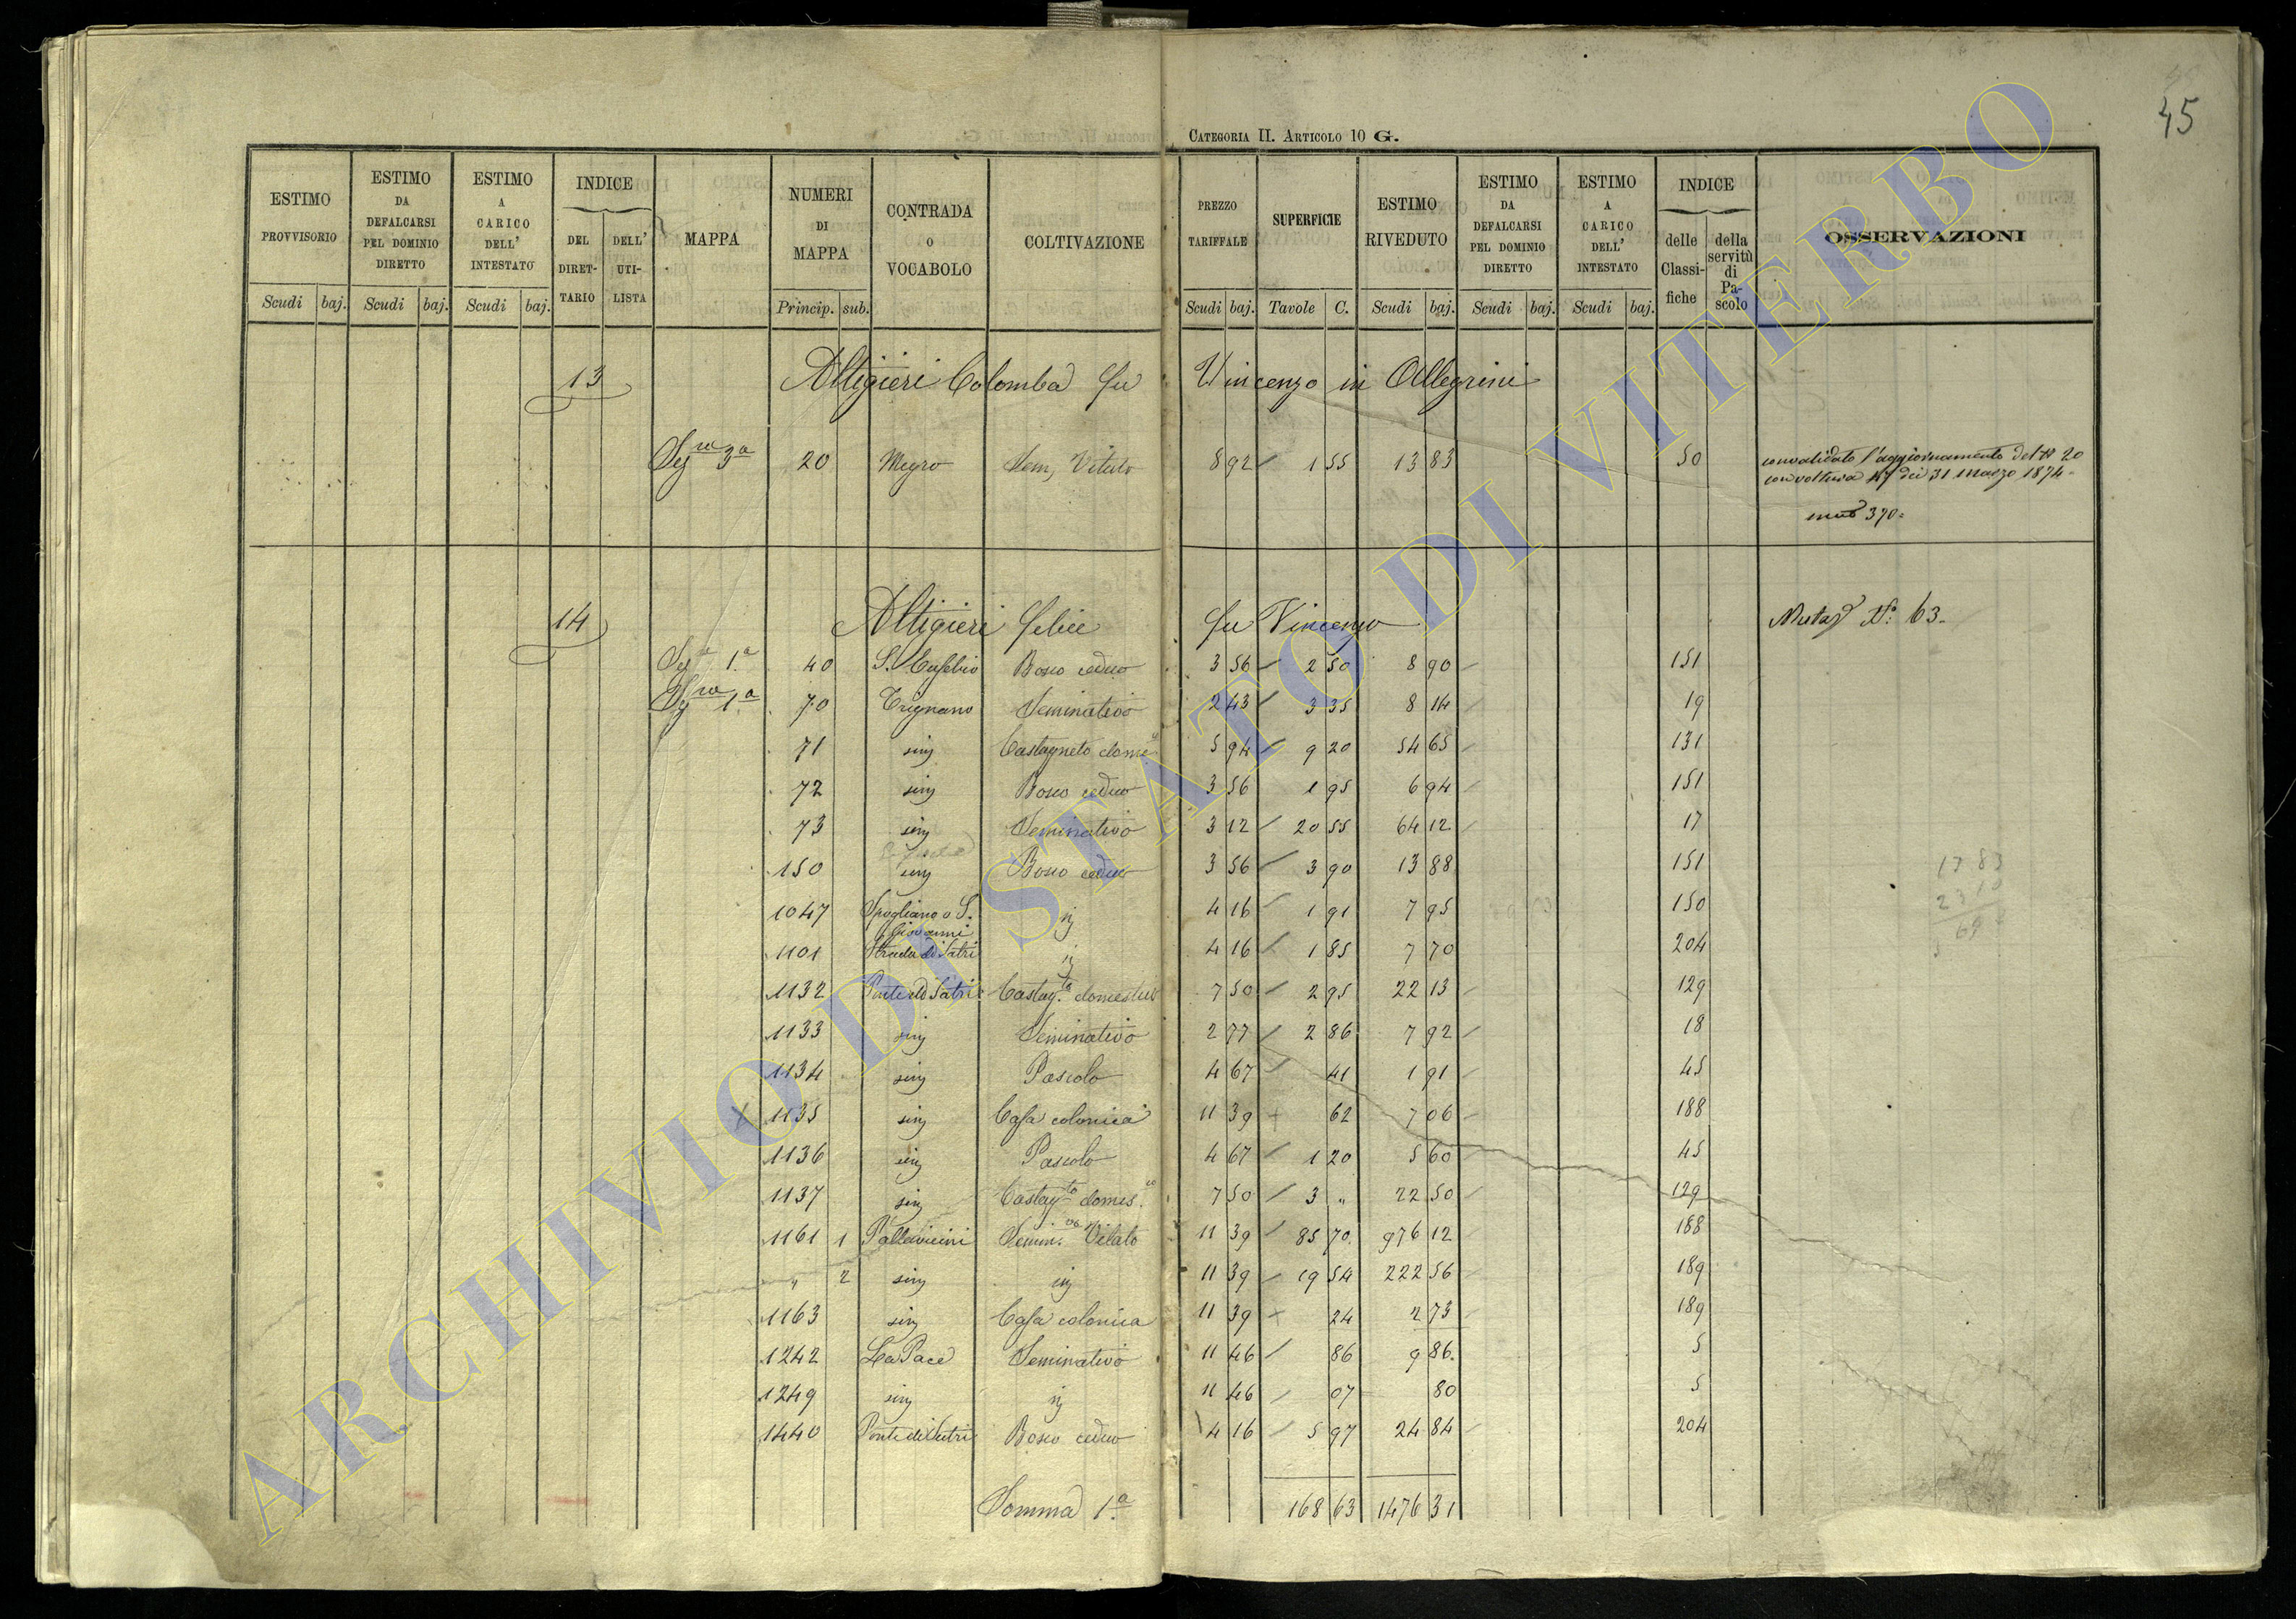 45
CATEGORIA II. ARTICOLO 10 G.
ESTIMO PROVVISORIO
ESTIMO DA DEFALCARSI PEL DOMINIO DIRETTO
ESTIMO A CARICO DELL' INTESTATO
INDICE
DEL DIRETTARIO
DELL' UTILISTA
MAPPA
NUMERI DI MAPPA
CONTRADA O VOCABOLO
COLTIVAZIONE
PREZZO TARIFFALE
SUPERFICIE
ESTIMO RIVEDUTO
ESTIMO DA DEFALCARSI PEL DOMINIO DIRETTO
ESTIMO A CARICO DELL' INTESTATO
INDICE
delle Classifiche
della servitù di Pascolo
OSSERVAZIONI
Scudi baj. Scudi baj. Scudi baj. Princip. sub. Scudi baj. Tavole C. Scudi baj. Scudi baj. Scudi baj.
13 Altigieri Colomba fu Vincenzo in Allegrini
Sez.ne 3a 20 Magro Sem, Vitato 8 92 1 55 13 83 50 convalidato l'aggiornamento del N 20
con voltura 47 dei 31 Marzo 1874
mut 370
14 Altigieri Felice fu Vincenzo Mutaz N.o 63
1.a 40 S. Eusebio Bosco ceduo 3 56 2 50 8 90 151
Sez.ne 1.a 70 Trignano Seminativo 2 43 3 35 8 14 19
71 sim Castagneto dome.co 5 94 9 20 54 65 131
72 sim Bosco ceduo 3 56 1 95 6 94 151
73 sim Seminativo 3 12 20 55 64 12 17
150 sim Bosco ceduo 3 56 3 90 13 88 151
1047 Spogliano o S. Giovanni 4 16 1 91 7 95 150
1101 Strada di Sutri 4 16 1 85 7 70 204
1132 Ponte di Sutri Castag.to domestico 7 50 2 95 22 13 129
1133 sim Seminativo 2 77 2 86 7 92 18
1134 sim Pascolo 4 67 41 1 91 45
1135 sim Casa colonica 11 39 62 7 06 188
1136 sim Pascolo 4 67 1 20 5 60 45
1137 sim Castag.to domes.co 7 50 3 " 22 50 129
1161 1 Pallavicini Semin.vo Vitato 11 39 85 70 976 12 188
" 2 sim 11 39 19 54 222 56 189
1163 sim Casa colonica 11 39 24 2 73 189
1242 La Pace Seminativo 11 46 86 9 86 5
1249 sim 11 46 07 80 5
1440 Ponte di Sutri Bosco ceduo 4 16 5 97 24 84 204
Somma 1.a 168 63 1476 31
ARCHIVIO DI STATO DI VITERBO